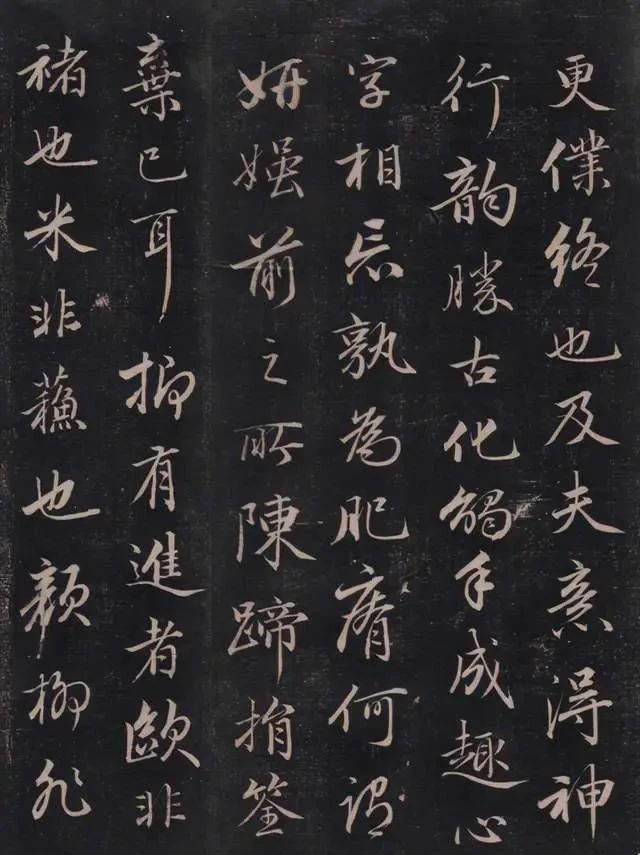 更僕終也及夫意得神
行韵勝古化觸手成趣心
字相忘孰為肥瘠何謂
妍媸前之所陳蹄捐筌
棄已耳抑有進者歐非
褚也米非蘓也顏柳非